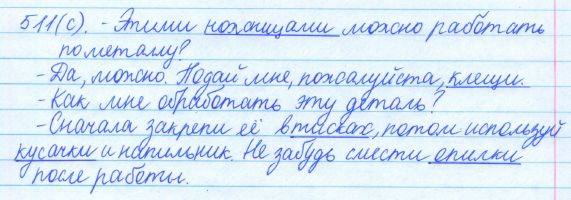 511(с). - Этими ножницами можно работать
по металу?
- Да, можно. Подай мне, пожалуйста, клещи.
- Как мне обработать эту деталь?
- Сначала закрепи её в тисках, потом используй
кусачки и напильник. Не забудь смести опилки
после работы.